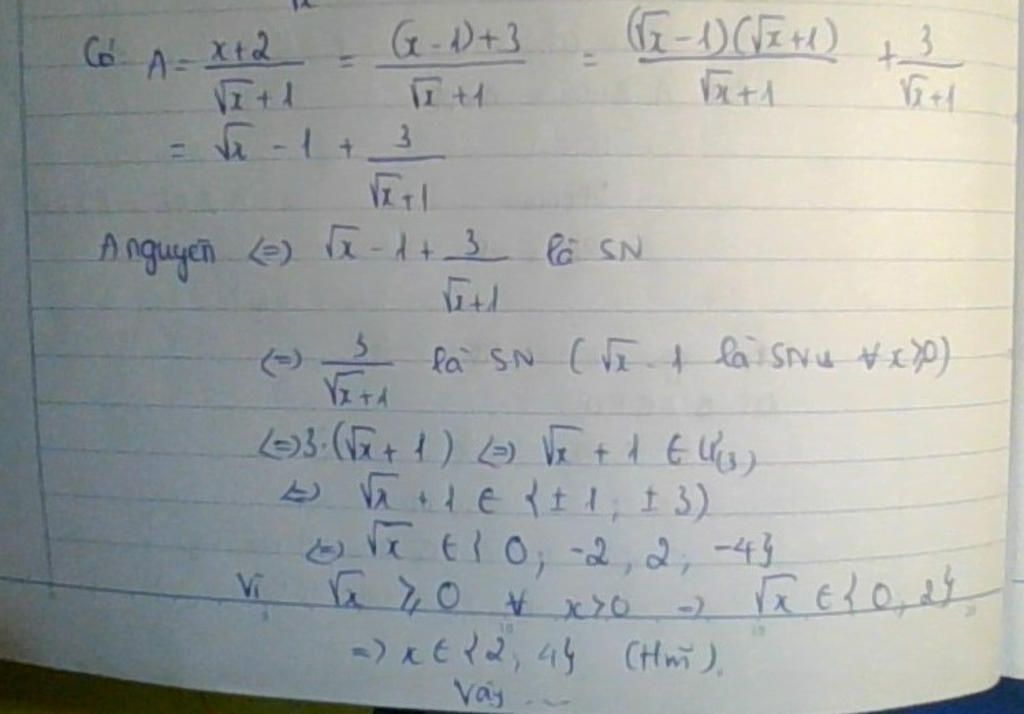 Có A = \frac{x+2}{\sqrt{x}+1} = \frac{(x-1)+3}{\sqrt{x}+1} = \frac{(\sqrt{x}-1)(\sqrt{x}+1)}{\sqrt{x}+1} + \frac{3}{\sqrt{x}+1}
= \sqrt{x} - 1 + \frac{3}{\sqrt{x}+1}
A nguyên <=> \sqrt{x} - 1 + \frac{3}{\sqrt{x}+1} là SN
<=> \frac{3}{\sqrt{x}+1} là SN ( \sqrt{x} - 1 là SN ∀ x ≥ 0)
<=> 3 ⋮ (\sqrt{x} + 1) <=> \sqrt{x} + 1 ∈ Ư(3)
<=> \sqrt{x} + 1 ∈ { ±1 ; ± 3)
<=> \sqrt{x} ∈ { 0; -2, 2; -4}
Vì \sqrt{x} ≥ 0 ∀ x > 0 => \sqrt{x} ∈ { 0, 2}
=> x ∈ { 2, 4} (tm).
Vậy ...